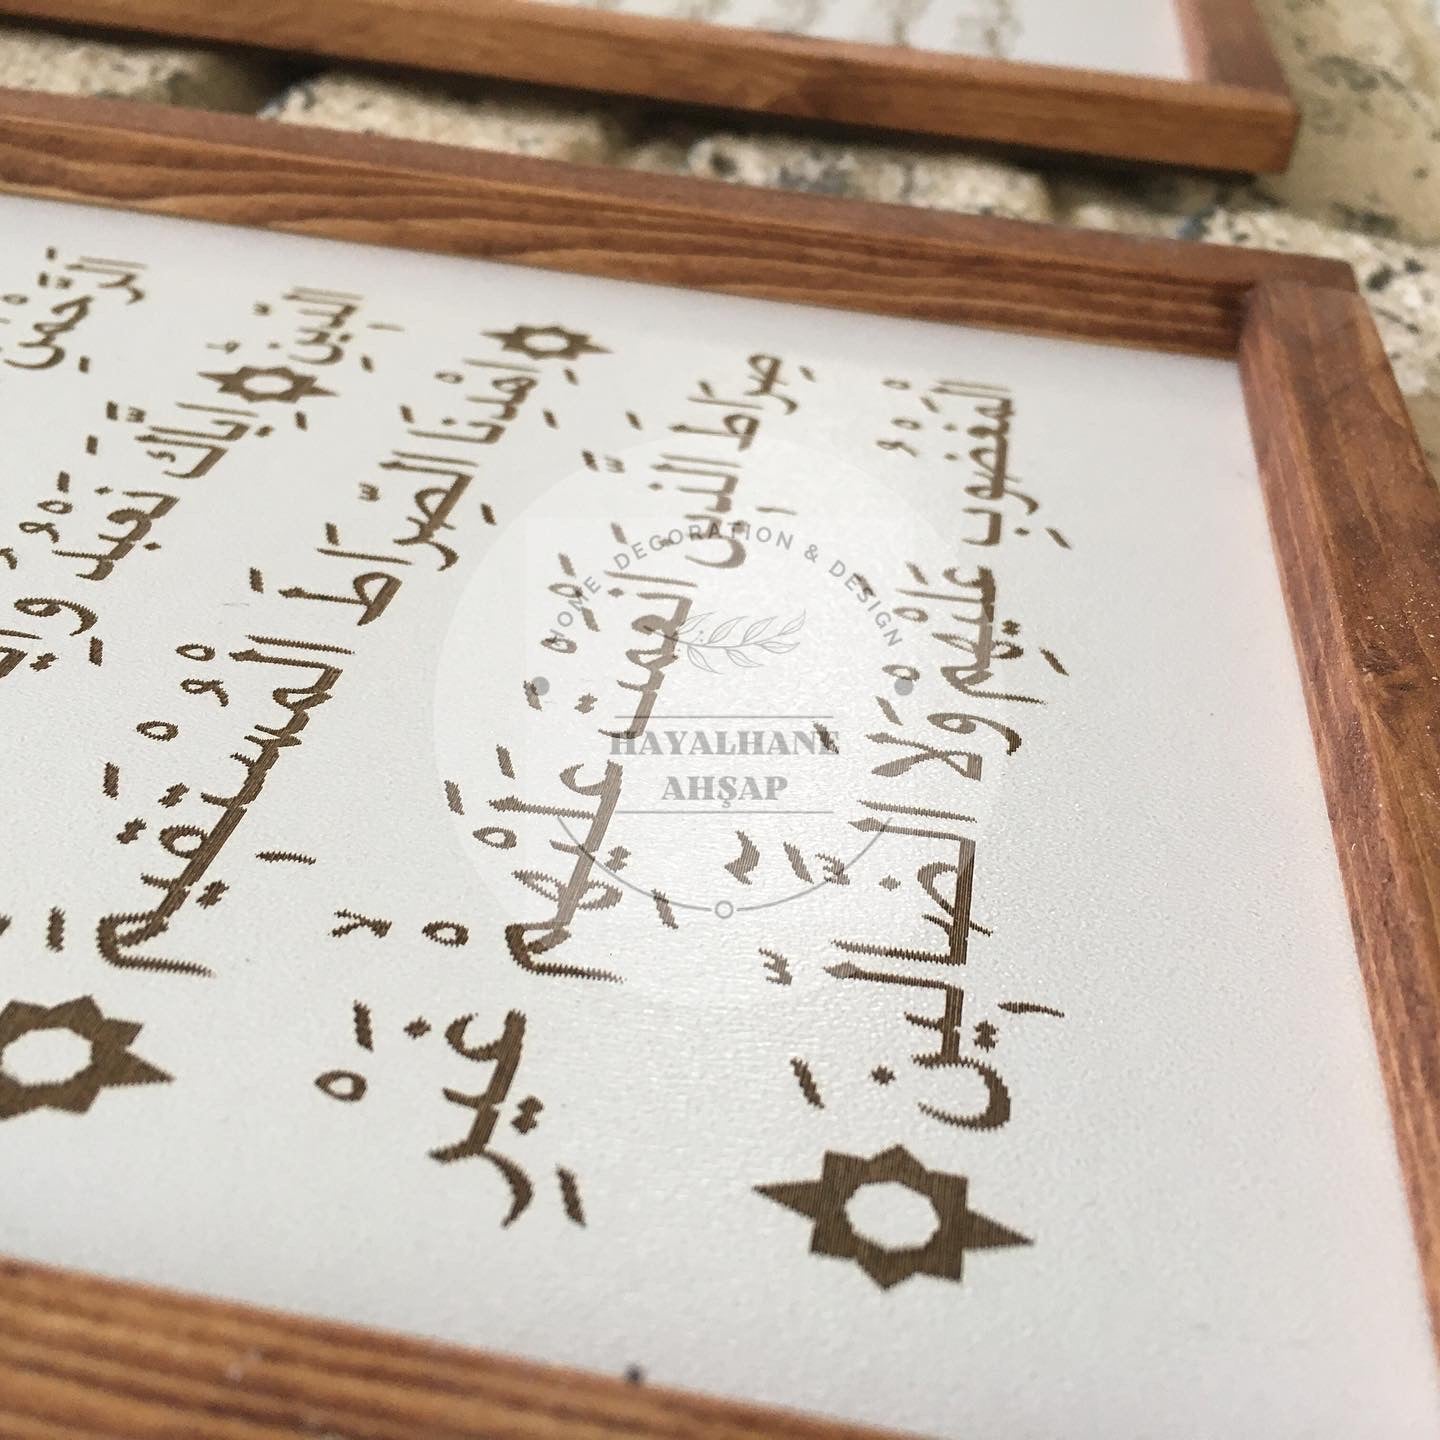 الرَّحِيمِ
الدِّينِ إِيَّاكَ نَعْبُدُ وَإِيَّ
اِهْدِنَا الصِّرَاطَ الْمُسْتَقِيمَ
صِرَاطَ الَّذِينَ اَنْعَمْتَ عَلَيْهِمْ غَيْرِ
الْمَغْضُوبِ عَلَيْهِمْ وَلَا الضَّٓالِّينَ
HOME DECORATION & DESIGN
HAYALHANE
AHŞAP